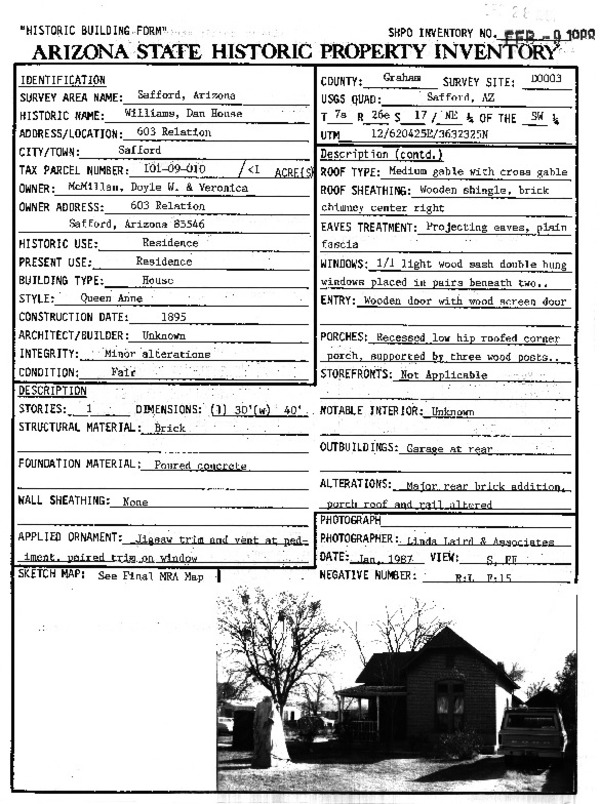 "HISTORIC BUILDING FORM"
SHPO INVENTORY NO. FEB -9 1988
ARIZONA STATE HISTORIC PROPERTY INVENTORY
IDENTIFICATION
SURVEY AREA NAME: Safford, Arizona
HISTORIC NAME: Williams, Dan House
ADDRESS/LOCATION: 603 Relation
CITY/TOWN: Safford
TAX PARCEL NUMBER: 101-09-010 /<1 ACRE(S)
OWNER: McMillan, Doyle W. & Veronica
OWNER ADDRESS: 603 Relation
Safford, Arizona 85546
HISTORIC USE: Residence
PRESENT USE: Residence
BUILDING TYPE: House
STYLE: Queen Anne
CONSTRUCTION DATE: 1895
ARCHITECT/BUILDER: Unknown
INTEGRITY: Minor alterations
CONDITION: Fair
DESCRIPTION
STORIES: 1 DIMENSIONS: (l) 30'(w) 40'
STRUCTURAL MATERIAL: Brick
FOUNDATION MATERIAL: Poured concrete
WALL SHEATHING: None
APPLIED ORNAMENT: Jigsaw trim and vent at ped-
iment, paired trim on window
SKETCH MAP: See Final MRA Map
COUNTY: Graham SURVEY SITE: D0003
USGS QUAD: Safford, AZ
T 7s R 26e S 17 / NE ¼ OF THE SW ¼
UTM 12/620425E/3632325N
Description (contd.)
ROOF TYPE: Medium gable with cross gable
ROOF SHEATHING: Wooden shingle, brick
chimney center right
EAVES TREATMENT: Projecting eaves, plain
fascia
WINDOWS: 1/1 light wood sash double hung
windows placed in pairs beneath two..
ENTRY: Wooden door with wood screen door
PORCHES: Recessed low hip roofed corner
porch, supported by three wood posts..
STOREFRONTS: Not Applicable
NOTABLE INTERIOR: Unknown
OUTBUILDINGS: Garage at rear
ALTERATIONS: Major rear brick addition,
porch roof and rail altered
PHOTOGRAPH
PHOTOGRAPHER: Linda Laird & Associates
DATE: Jan, 1987 VIEW: S,
NEGATIVE NUMBER: